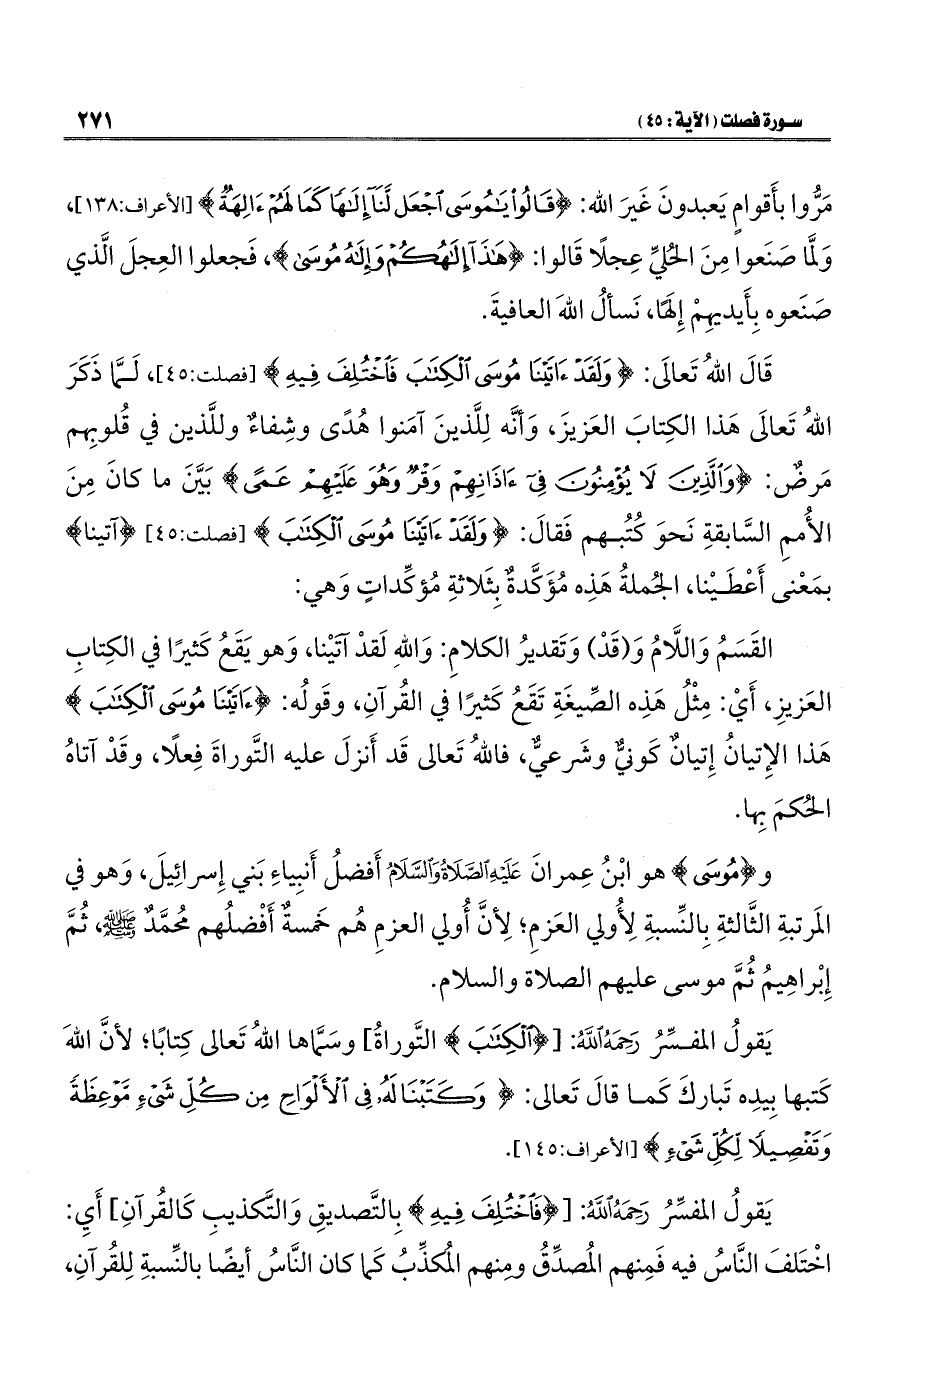 سورة فصلت (الآية: ٤٥) ٢٧١
مَرُّوا بأَقوامٍ يَعبدونَ غَيرَ الله: ﴿قَالُوا۟ يَـٰمُوسَى ٱجْعَل لَّنَآ إِلَـٰهًا كَمَا لَهُمْ ءَالِهَةٌ﴾ [الأعراف:١٣٨]،
وَلَمَّا صَنَعوا مِنَ الحُليِّ عِجلًا قَالوا: ﴿هَـٰذَآ إِلَـٰهُكُمْ وَإِلَـٰهُ مُوسَىٰ﴾، فَجعلوا العِجلَ الَّذي
صَنَعوه بِأَيديهِمْ إِلَهًا، نَسألُ اللهَ العافيةَ.
قَالَ اللهُ تَعالَى: ﴿وَلَقَدْ ءَاتَيْنَا مُوسَى ٱلْكِتَـٰبَ فَٱخْتُلِفَ فِيهِ﴾ [فصلت:٤٥]، لَـمَّا ذَكَرَ
اللهُ تَعالَى هَذا الكِتابَ العَزيزَ، وَأنَّه لِلَّذينَ آمَنوا هُدًى وشِفاءٌ وللَّذين في قُلوبِهم
مَرضٌ: ﴿وَٱلَّذِينَ لَا يُؤْمِنُونَ فِىٓ ءَاذَانِهِمْ وَقْرٌ وَهُوَ عَلَيْهِمْ عَمًى﴾ بَيَّنَ ما كانَ مِنَ
الأُممِ السَّابقةِ نَحوَ كُتُبـهم فَقالَ: ﴿وَلَقَدْ ءَاتَيْنَا مُوسَى ٱلْكِتَـٰبَ﴾ [فصلت:٤٥] ﴿آتينا﴾
بمَعْنى أَعْطَـيْنا، الجُملةُ هَذِه مُؤكَّدةٌ بِثَلاثةِ مُؤكِّداتٍ وَهي:
القَسَمُ وَاللَّامُ وَ(قَدْ) وَتَقديرُ الكلامِ: وَاللهِ لَقدْ آتَيْنا، وَهو يَقَعُ كَثيرًا في الكِتابِ
العَزيزِ، أَيْ: مِثْلُ هَذِه الصِّيغَةِ تَقَعُ كَثيرًا في القُرآنِ، وقَولُه: ﴿ءَاتَيْنَا مُوسَى ٱلْكِتَـٰبَ﴾
هَذا الإِتيانُ إِتيانٌ كَونيٌّ وشَرعيٌّ، فاللهُ تَعالى قَد أَنزلَ عليه التَّوراةَ فِعلًا، وقَدْ آتاهُ
الحُكمَ بِها.
و﴿مُوسَى﴾ هو ابْنُ عِمرانَ عَلَيْهِ الصَّلَاةُ وَالسَّلَامُ أَفضلُ أَنبياءِ بَني إِسرائيلَ، وَهو في
المَرتبةِ الثَّالثةِ بِالنِّسبةِ لِأُولي العَزمِ؛ لِأنَّ أُولي العزمِ هُم خَمسةٌ أَفْضلُهم مُحَمَّدٌ ﷺ، ثُمَّ
إبْراهِيمُ ثُمَّ موسى عليهم الصلاة والسلام.
يَقولُ المفسِّرُ رَحِمَهُ اللَّهُ: [﴿ٱلْكِتَـٰبَ﴾ التَّوراةُ] وسَمَّاها اللهُ تَعالى كِتابًا؛ لأنَّ اللهَ
كَتبها بِيدِه تَباركَ كَمـا قالَ تَعالى: ﴿وَكَتَبْنَا لَهُۥ فِى ٱلْأَلْوَاحِ مِن كُلِّ شَىْءٍ مَّوْعِظَةً
وَتَفْصِيلًا لِّكُلِّ شَىْءٍ﴾ [الأعراف:١٤٥].
يَقولُ المفسِّرُ رَحِمَهُ اللَّهُ: [﴿فَٱخْتُلِفَ فِيهِ﴾ بِالتَّصديقِ وَالتَّكذيبِ كَالقُرآنِ] أَيِ:
اخْتَلفَ النَّاسُ فيه فَمِنهم المُصدِّقُ ومِنهم المُكذِّبُ كَما كان النَّاسُ أيضًا بالنِّسبةِ لِلقُرآنِ،